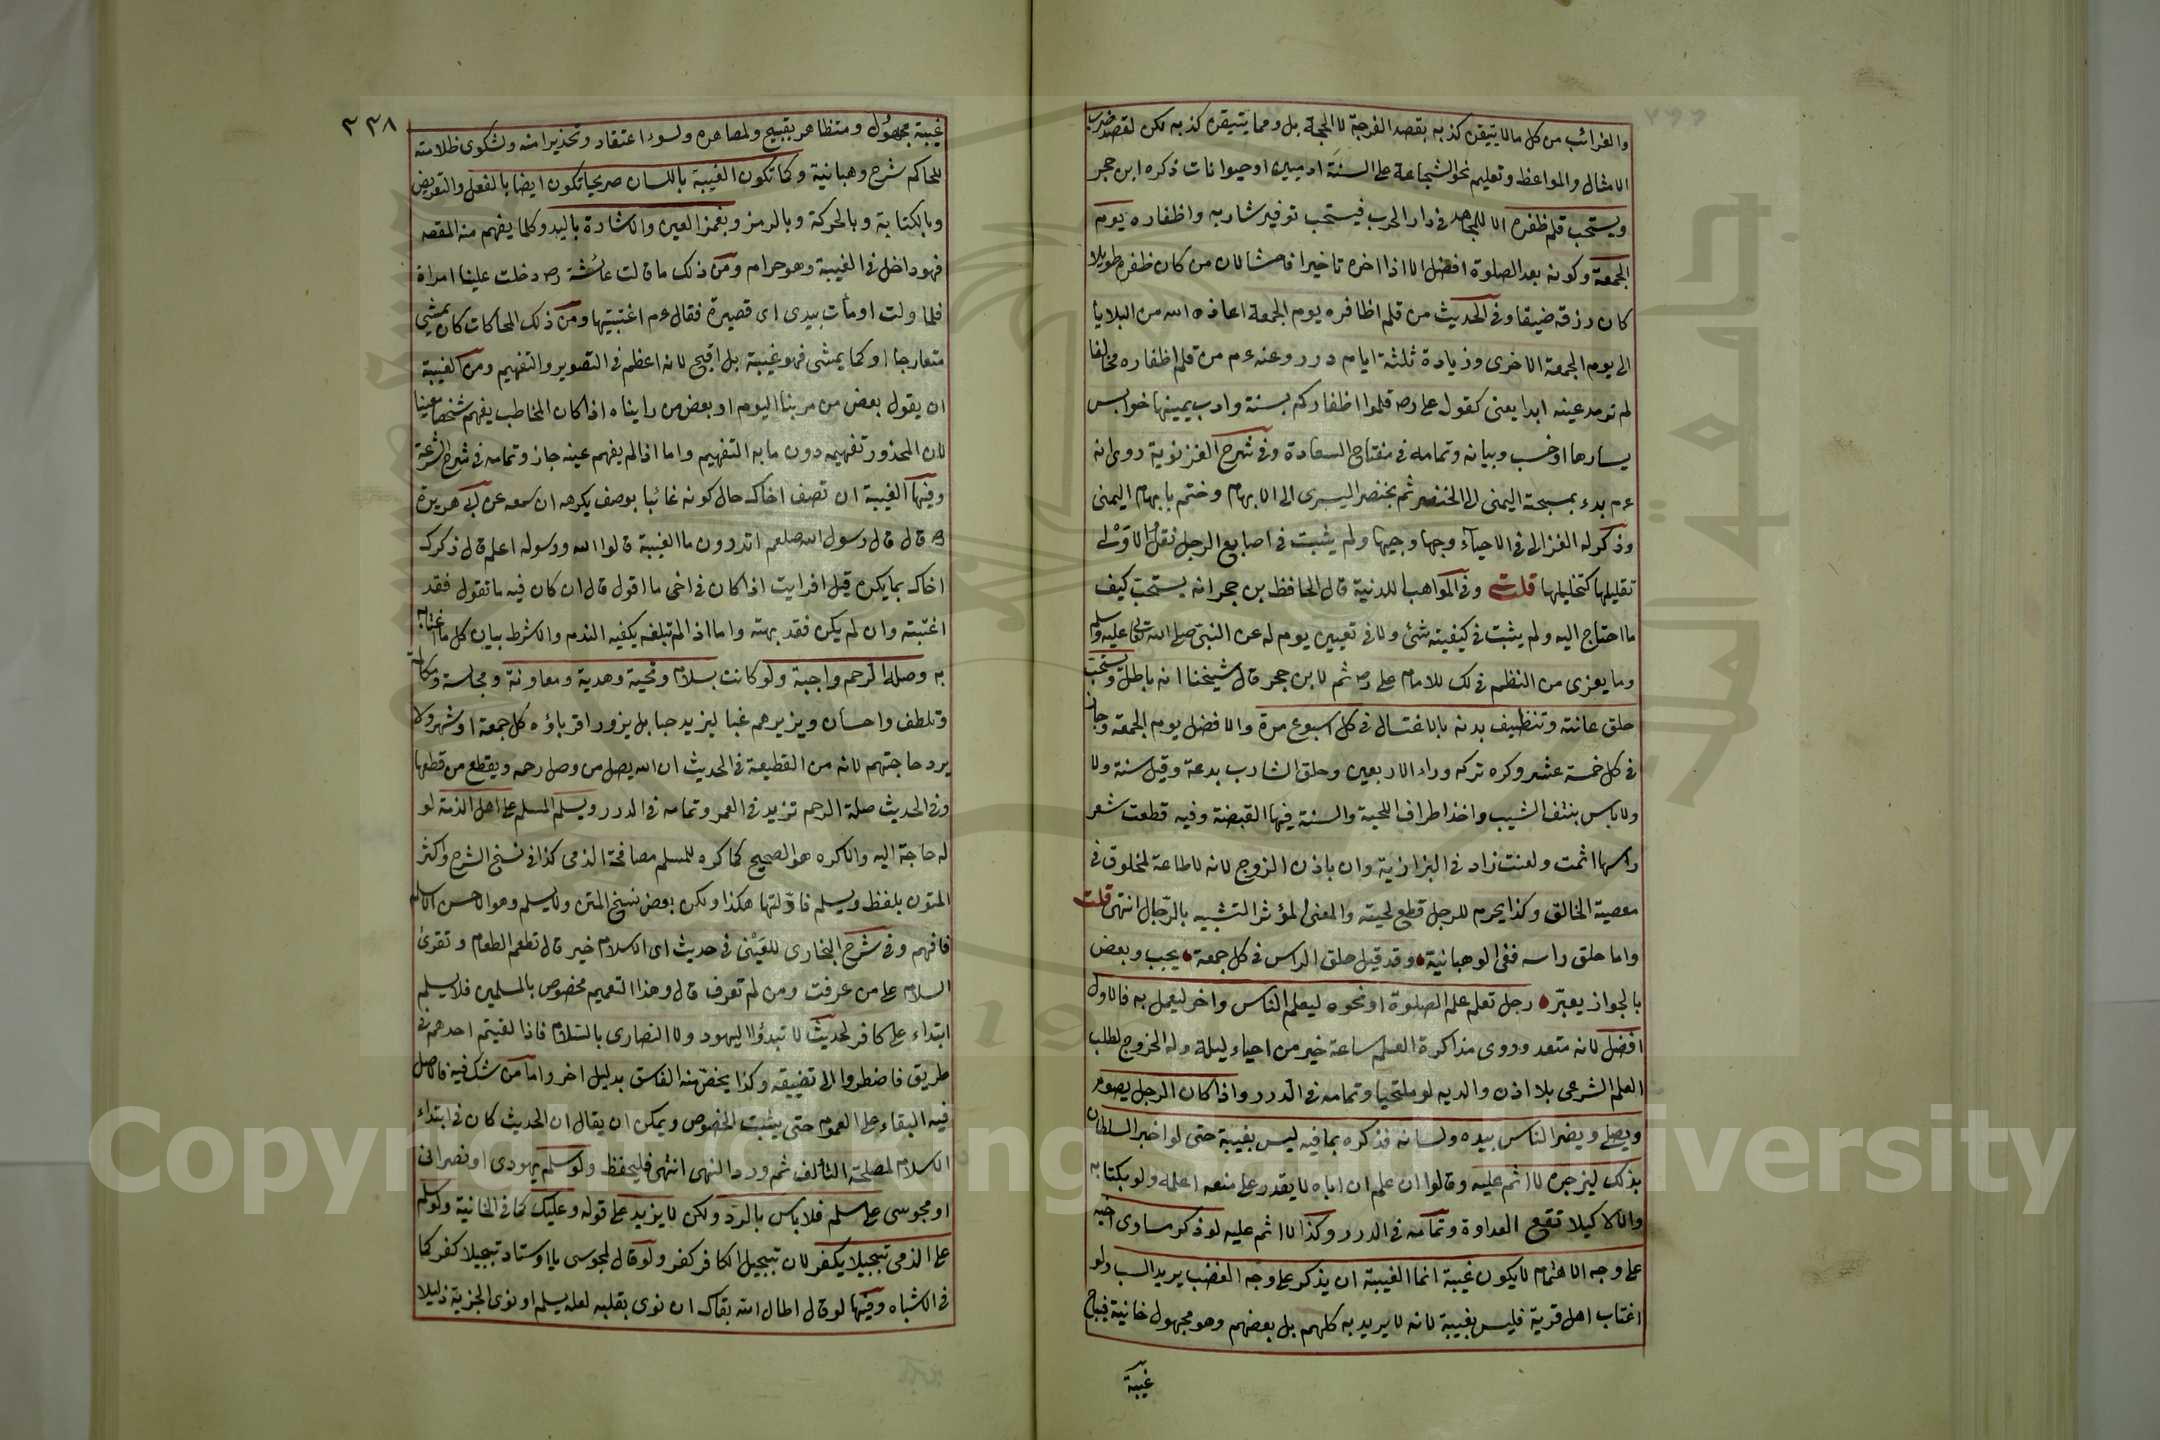 والغرائب من كل مالا يتيقن كذبه بقصد الفرجة لا الحجة بل ومما يتيقن كذبه لكن لقصد ضرب
الامثال والمواعظ وتعليم نحو الشجاعة على السنة ادميين او حيوانات ذكره ابن حجر
ويستحب قلم ظفره الا للمجاهد في دار الحرب فيستحب توفير شاربه واظفاره يوم
الجمعة وكونه بعد الصلوة افضل الا اذا اخره تاخيرا فاحشا لان من كان ظفره طويلا
كان رزقه ضيقا وفي الحديث من قلم اظافره يوم الجمعة اعاذه الله من البلايا
الى يوم الجمعة الاخرى وزيادة ثلثة ايام درر وعنه عم من قلم اظفاره مخالفا
لم ترمد عينه ابدا يعني كقول على رض قلموا اظفاركم بسنة وادب يمينها خوابس
يسارها اوخسب وبيانه وتمامه في مفتاح السعادة وفي شرح الغزنوية روى انه
عم بدء بمسبحة اليمنى الى الخنصر ثم بخنصر اليسرى الى الابهام وختم بابهام اليمنى
وذكر له الغزالى في الاحياء وجها وجيها ولم يثبت في اصابع الرجل نقل والاولى
تقليلها كتخليلها قلت وفي المواهب اللدنية قال الحافظ بن حجر انه يستحب كيف
ما احتاج اليه ولم يثبت في كيفيته شئ ولا في تعيين يوم له عن النبى صلى الله تعالى عليه وسلم
وما يعزى من النظم في ذلك للامام على رض ثم لابن حجر قال شيخنا انه باطل ويستحب
حلق عانته وتنظيف بدنه بالاغتسال في كل اسبوع مرة والافضل يوم الجمعة وجاز
في كل خمسة عشر وكره تركه وراء الاربعين وحلق الشارب بدعة وقيل سنة ولا
ولا باس بنتف الشيب واخذ اطراف اللحية والسنة فيها القبضة وفيه قطعت شعر
راسها اثمت ولعنت زاد في البزازية وان باذن الزوج لانه لا طاعة لمخلوق في
معصية الخالق وكذا يحرم للرجل قطع لحيته والمعنى المؤثر التشبيه بالرجال انتهى قلت
واما حلق راسه ففى الوهبانية وقد قيل حلق الراس في كل جمعة يحب وبعض
بالجواز يعبر رجل تعلم علم الصلوة او نحوه ليعلم الناس واخر ليعمل به فالاول
افضل لانه متعد وروى مذاكرة العلم ساعة خير من احياء ليلة وله الخروج لطلب
العلم الشرعى بلا اذن والديه لو ملتحيا وتمامه في الدرر واذا كان الرجل يصوم
ويصلى ويضر الناس بيده ولسانه فذكره بما فيه ليس بغيبة حتى لو اخبر السلطان
بذلك ليزجره لا اثم عليه وقالوا ان علم ان اباه لا يقدر على منعه اعلمه ولو بكتابه
والا لا كيلا تقع العداوة وتمامه في الدرر وكذا لا اثم عليه لو ذكر مساوى اخيه
على وجه الاهتمام لا يكون غيبة انما الغيبة ان يذكر على وجه الغضب يريد السب ولو
اغتاب اهل قرية فليس بغيبة لانه لا يريد به كلهم بل بعضهم وهو مجهول خانية فيباح
غيبة
٣٣٨
غيبة مجهول ومتظاهر بقبيح ولمصاهره ولسوء اعتقاد وتحذيرا منه ولشكوى ظلامته
للحاكم شرح وهبانية وكما تكون الغيبة باللسان صريحا تكون ايضا بالفعل والتعريض
وبالكتابة وبالحركة وبالرمز وبغمز العين والاشارة باليد وكلما يفهم منه المقصد
فهو داخل في الغيبة وهو حرام ومن ذلك ما قالت عائشة رض دخلت علينا امراة
فلما ولت اومأت بيدى اى قصيرة فقال عم اغتبتيها ومن ذلك المحاكات كان يمشى
متعارجا او كما يمشى فهو غيبة بل اقبح لانه اعظم في التصوير والتفهيم ومن الغيبة
ان يقول بعض من مر بنا اليوم او بعض من رايناه اذا كان المخاطب يفهم شخصا معينا
لان المحذور تفهيمه دون ما به التفهيم واما اذا لم يفهم عينه جاز وتمامه في شرح الشرعة
وفيها الغيبة ان تصف اخاك حال كونه غائبا بوصف يكرهه ان سمعه عن ابى هريرة
رض قال قال رسول الله صلعم اتدرون ما الغيبة قالوا الله ورسوله اعلم قال ذكرك
اخاك بما يكره قيل افرايت اذا كان في اخى ما اقول قال ان كان فيه ما تقول فقد
اغتبته وان لم يكن فقد بهته واما اذا لم تبلغه يكفيه الندم والا شرط بيان كل ما اغتابه
به وصلة الرحم واجبة ولو كانت بسلام وتحية وهدية ومعاونة ومجالسة ومكالمة
وتلطف واحسان ويزيرهم غبا ليزيد حبا بل يزور اقرباؤه كل جمعة او شهر ولا
يرد حاجتهم لانه من القطيعة في الحديث ان الله يصل من وصل رحمه ويقطع من قطعها
وفي الحديث صلة الرحم تزيد في العمر وتمامه في الدرر ويسلم المسلم على اهل الذمة لو
له حاجة اليه والا كره هو الصحيح كما كره للمسلم مصافحة الذمى كذا في نسخ الشرح واكثر
المتون بلفظ ويسلم فاولتها هكذا ولكن بعض نسخ المتن ولا يسلم وهو الاحسن الاسلم
فافهم وفي شرح البخارى للعينى في حديث اى الاسلام خير قال تطعم الطعام وتقرئ
السلام على من عرفت ومن لم تعرف قال وهذا التعميم مخصوص بالمسلمين فلا يسلم
ابتداء على كافر لحديث لا تبدؤا اليهود ولا النصارى بالسلام فاذا لقيتم احدهم في
طريق فاضطروا الى تضيقه وكذا يخص منه الفاسق بدليل اخر واما من شك فيه فالاصل
فيه البقاء على العموم حتى يثبت الخصوص ويمكن ان يقال ان الحديث كان في ابتداء
الاسلام لمصلحة التألف ثم ورد النهى انتهى فليحفظ ولو سلم يهودى او نصرانى
او مجوسى على مسلم فلا باس بالرد ولكن لا يزيد على قوله وعليك كما في الخانية ولو سلم
على الذمى تبجيلا يكفر لان تبجيل الكافر كفر ولو قال لمجوسى يا اوستاد تبجيلا كفر كما
في الاشباه وفيها لو قال اطال الله بقاك ان نوى بقلبه لعله يسلم او نوى الجزية ذليلا
Copyright © King Saud University